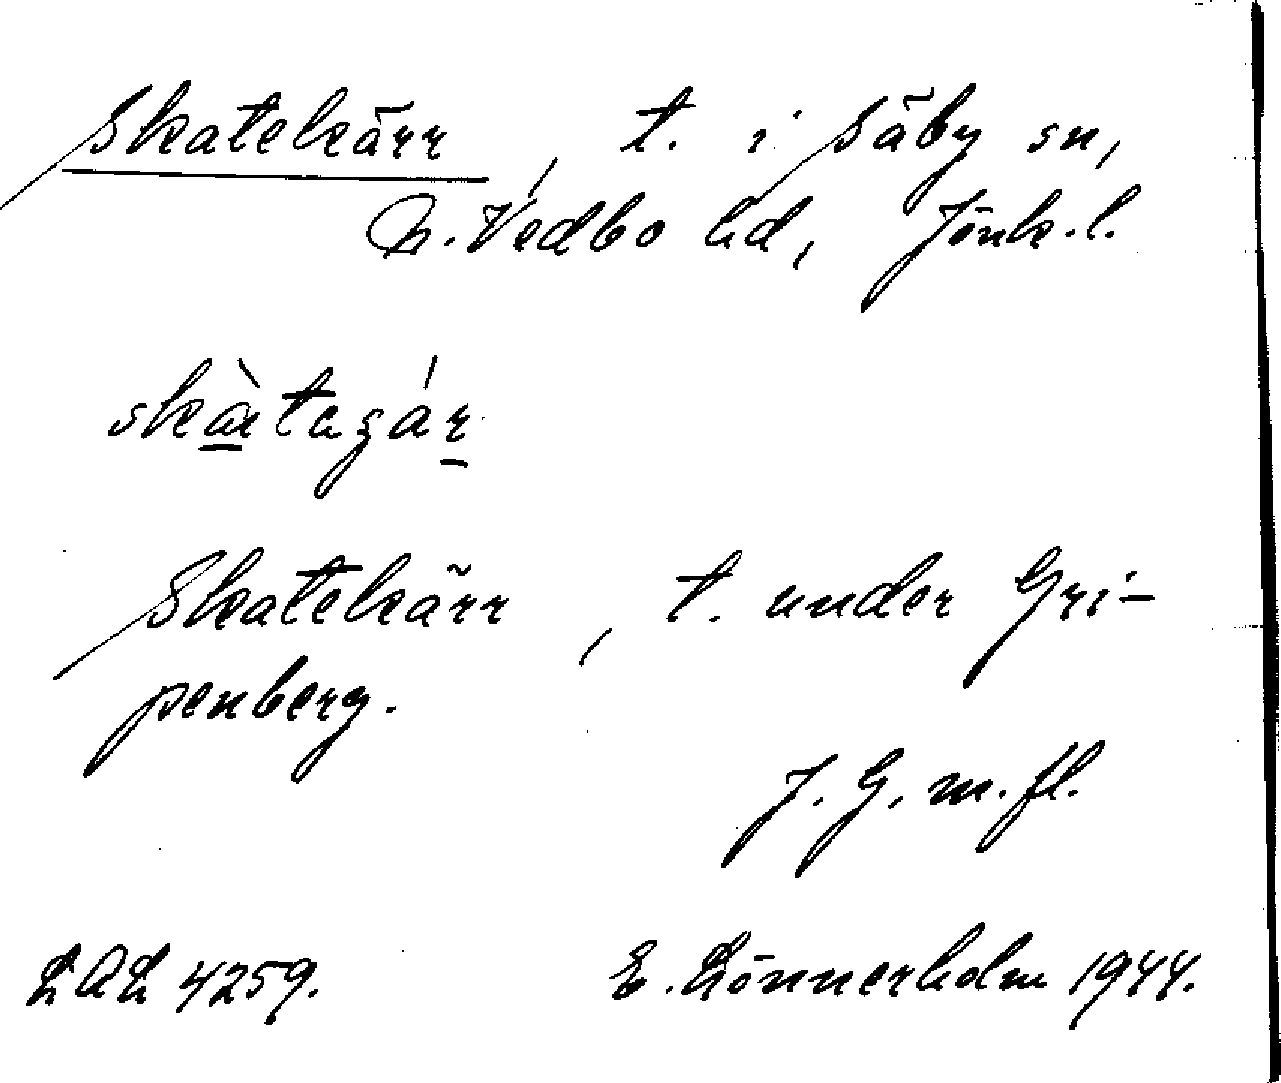 Skatekärr, t. i Säby sn,
N. Vedbo hd, Jönk. l.
Skatekärr, t. under Gri-
penberg.
J. G. m. fl.
LAL 4259. E. Lönnerholm 1944.